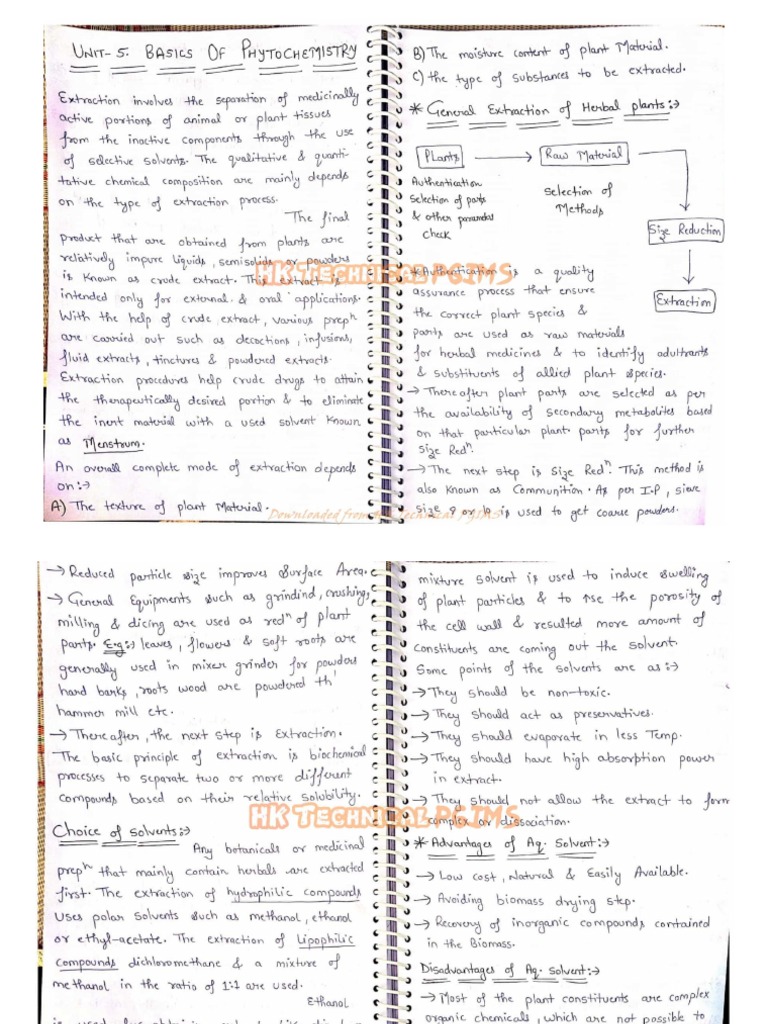 UNIT-5. BASICS OF PHYTOCHEMISTRY
Extraction involves the separation of medicinally
active portions of animal or plant tissues
from the inactive components through the use
of selective solvents. The qualitative & quanti-
tative chemical composition are mainly depends
on the type of extraction process.
The final
product that are obtained from plants are
relatively impure liquids, semisolids or powders
is known as crude extract. This extract is
intended only for external & oral applications.
With the help of crude extract, various prepⁿ
are carried out such as decoctions, infusions,
fluid extracts, tinctures & powdered extracts.
Extraction procedures help crude drugs to attain
the therapeutically desired portion & to eliminate
the inert material with a used solvent known
as Menstrum.
An overall complete mode of extraction depends
on:→
A) The texture of plant Material.
B) The moisture content of plant Material.
C) the type of substances to be extracted.
* General Extraction of Herbal plants:→
Plants → Raw Material
Authentication
Selection of parts
& other parameter
check
Selection of
Methods
Size Reduction
Extraction
HK TECHNICAL PGIMS
* Authentication is a quality
assurance process that ensure
the correct plant species &
parts are used as raw materials
for herbal medicines & to identify adultrants
& substituents of allied plant species.
→ Thereafter plant parts are selected as per
the availability of secondary metabolites based
on that particular plant parts for further
size Redⁿ.
→ The next step is Size Redⁿ. This method is
also known as Communition. As per I.P, sieve
size 8 or 10 is used to get coarse powders.
Downloaded from HK Technical PGIMS
→ Reduced particle size improves Surface Area.
→ General Equipments such as grindind, crushing,
milling & dicing are used as redⁿ of plant
parts. E.g:→ leaves, flowers & soft roots are
generally used in mixer grinder for powders
hard banks, roots wood are powdered th'
hammer mill etc.
→ Thereafter, the next step is Extraction.
The basic principle of extraction is biochemical
processes to separate two or more different
compounds based on their relative solubility.
HK TECHNICAL PGIMS
Choice of solvents:→
Any botanicals or medicinal
prepⁿ that mainly contain herbals are extracted
first. The extraction of hydrophilic compounds
uses polar solvents such as methanol, ethanol
or ethyl-acetate. The extraction of Lipophilic
compounds dichloromethane & a mixture of
methanol in the ratio of 1:1 are used.
Ethanol
is used for
mixture solvent is used to induce swelling
of plant particles & to ↑se the porosity of
the cell wall & resulted more amount of
constituents are coming out the solvent.
Some points of the solvents are as:→
→ They should be non-toxic.
→ They should act as preservatives.
→ They should evaporate in less Temp.
→ They should have high absorption power
in extract.
→ They should not allow the extract to form
complex or dissociation.
* Advantages of Aq. Solvent:→
→ Low cost, Natural & Easily Available.
→ Avoiding biomass drying step.
→ Recovery of inorganic compounds contained
in the Biomass.
Disadvantages of Aq. Solvent:→
→ Most of the plant constituents are complex
organic chemicals, which are not possible to